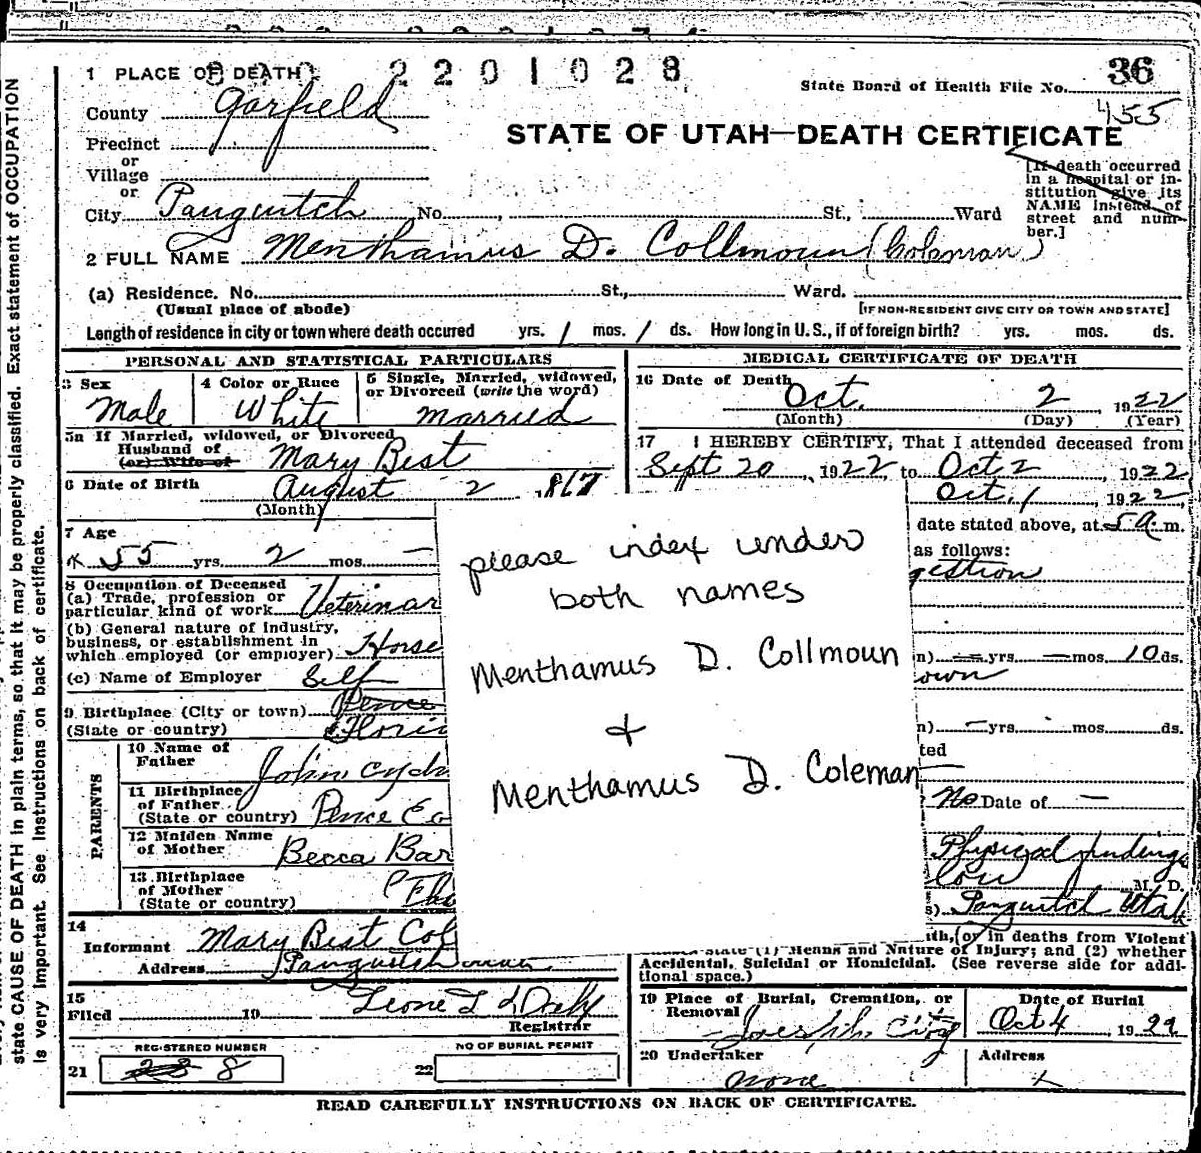 1 PLACE OF DEATH 2201028 36
State Board of Health File No.
County Garfield 455
STATE OF UTAH—DEATH CERTIFICATE
Precinct
or
Village
or
City Panguitch No. , St., Ward
[If death occurred
in a hospital or in-
stitution give its
NAME instead of
street and num-
ber.]
2 FULL NAME Menthamus D. Collmoun (Coleman)
(a) Residence. No. St., Ward.
(Usual place of abode) [IF NON-RESIDENT GIVE CITY OR TOWN AND STATE]
Length of residence in city or town where death occured yrs. 1 mos. 1 ds. How long in U. S., if of foreign birth? yrs. mos. ds.
PERSONAL AND STATISTICAL PARTICULARS
3 Sex 4 Color or Race 5 Single, Married, widowed,
or Divorced (write the word)
Male White married
5a If Married, widowed, or Divorced
Husband of
(or) Wife of Mary Best
6 Date of Birth August 2 1867
(Month)
7 Age
55 yrs. 2 mos. —
8 Occupation of Deceased
(a) Trade, profession or
particular kind of work Veterinar
(b) General nature of industry,
business, or establishment in
which employed (or employer) Horse
(c) Name of Employer Self
9 Birthplace (City or town) Pence
(State or country) Florid
PARENTS
10 Name of
Father John
11 Birthplace
of Father
(State or country) Pence Co
12 Maiden Name
of Mother Becca Bar
13 Birthplace
of Mother
(State or country)
14
Informant Mary Best Col
Address Panguitch
15
Filed 19 Leone
Registrar
REGISTERED NUMBER NO OF BURIAL PERMIT
21 8 22
MEDICAL CERTIFICATE OF DEATH
16 Date of Death Oct. 2 1922
(Month) (Day) (Year)
17 I HEREBY CERTIFY, That I attended deceased from
Sept 20, 1922, to Oct 2 1922
Oct. 1 1922,
date stated above, at 5 a. m.
as follows:
gestion
n) — yrs. — mos. 10 ds.
own
n) — yrs. mos. ds.
ted
? No Date of —
Physical findings
low M. D.
s) Panguitch Utah
ith, (or in deaths from Violent
state (1) Means and Nature of Injury; and (2) whether
Accidental, Suicidal or Homicidal. (See reverse side for addi-
tional space.)
19 Place of Burial, Cremation, or
Removal Date of Burial
Joseph City Oct 4, 1922
20 Undertaker Address
none
READ CAREFULLY INSTRUCTIONS ON BACK OF CERTIFICATE.
please index under
both names
Menthamus D. Collmoun
+
Menthamus D. Coleman
state CAUSE OF DEATH in plain terms, so that it may be properly classified. Exact statement of OCCUPATION
is very important. See Instructions on back of certificate.